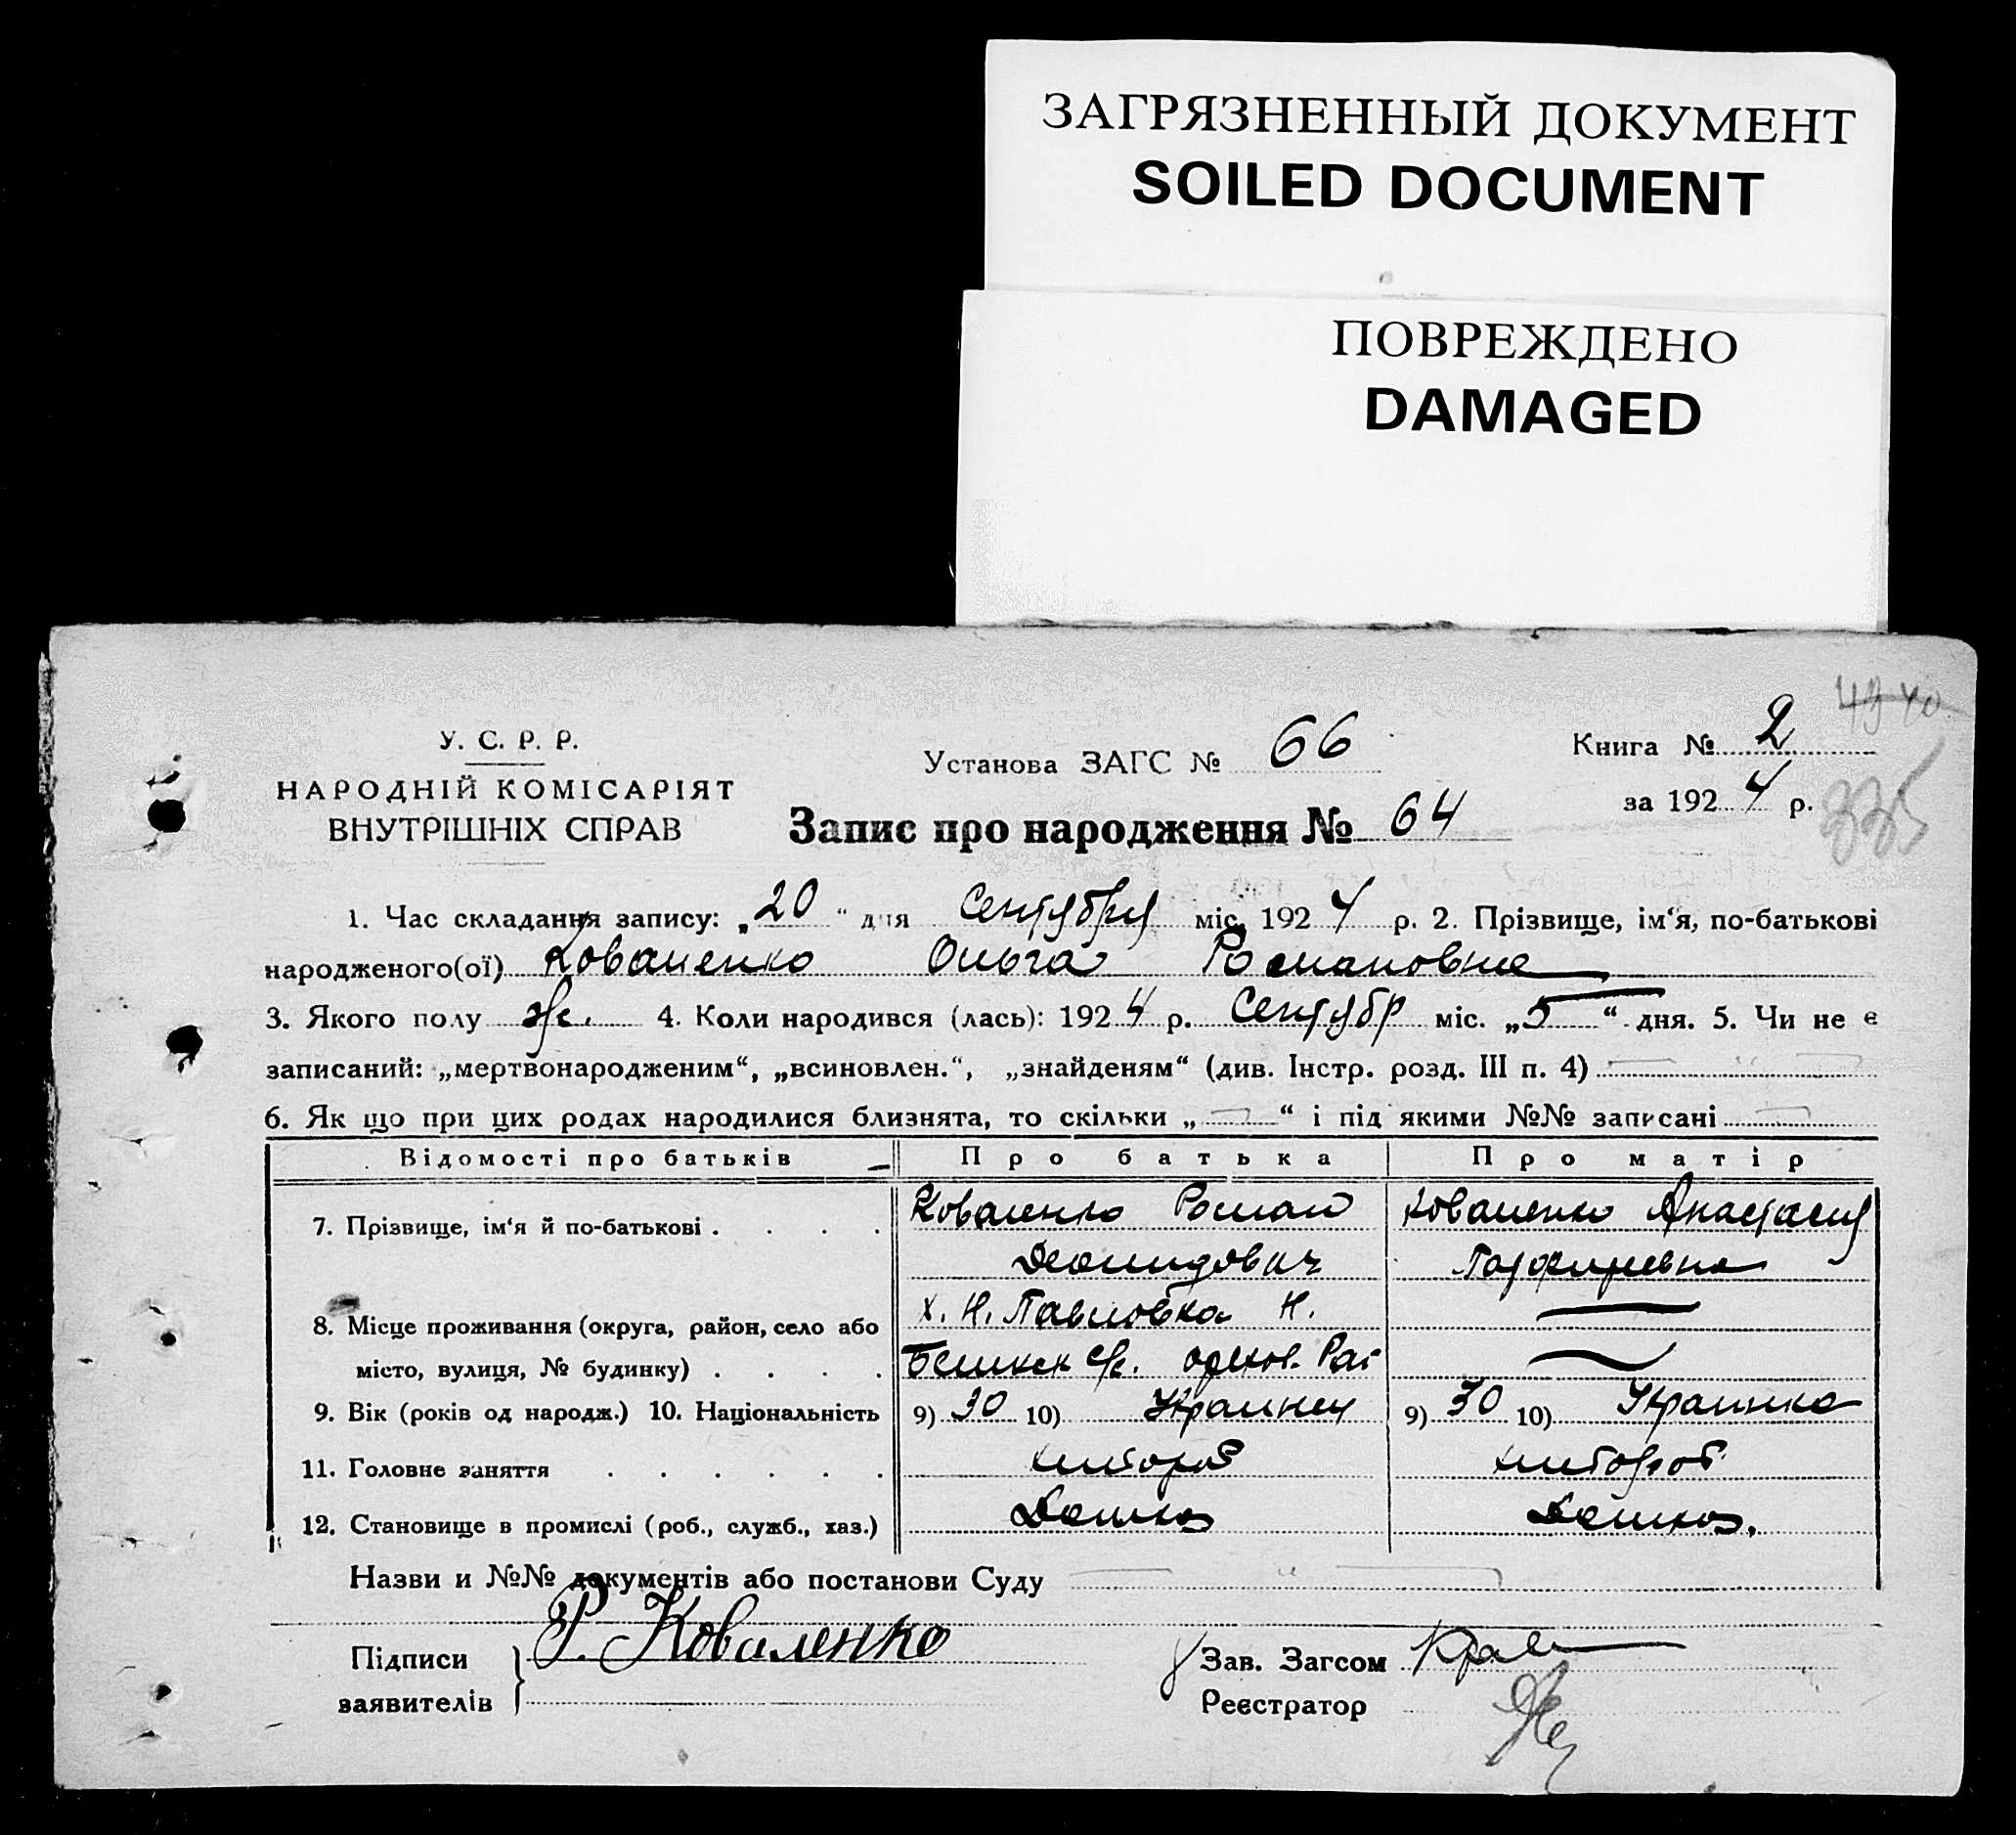 ЗАГРЯЗНЕННЫЙ ДОКУМЕНТ
SOILED DOCUMENT
ПОВРЕЖДЕНО
DAMAGED
У. С. Р. Р.
НАРОДНІЙ КОМІСАРІЯТ
ВНУТРІШНІХ СПРАВ
Установа ЗАГС № 66
Книга № 2
за 1924 р.
335
Запис про народження № 64
1. Час складання запису: „20“ дня Сентября міс. 1924 р. 2. Прізвище, ім‘я, по-батькові
народженого(ої) Коваленко Ольга Романовна
3. Якого полу ж. 4. Коли народився (лась): 1924 р. Сентябр міс. „5“ дня. 5. Чи не є
записаний: „мертвонародженим“, „всиновлен.“, „знайденям“ (див. Інстр. розд. III п. 4)
6. Як що при цих родах народилися близнята, то скільки „ — “ і під якими №№ записані
Відомості про батьків Про батька Про матір
7. Прізвище, ім‘я й по-батькові . . . . Коваленко Роман Коваленко Анастасия
8. Місце проживання (округа, район, село або х. Н. Павловка Н.
місто, вулиця, № будинку) . . . .
9. Вік (років од народж.) 10. Національність 9) 30 10) Украинец 9) 30 10) Украинка
11. Головне заняття . . . . . . хлебороб хлебороб
12. Становище в промислі (роб., служб., хаз.)
Назви и №№ документів або постанови Суду
Підписи Р. Коваленко
заявителів
Зав. Загсом
Реєстратор